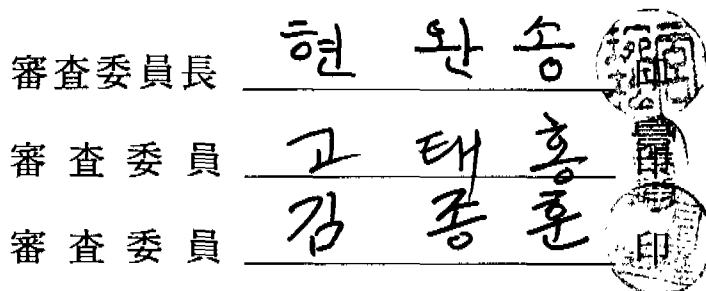 審査委員長 현 완 송 印
審 査 委 員 고 태 홍 印
審 査 委 員 김 종 훈 印